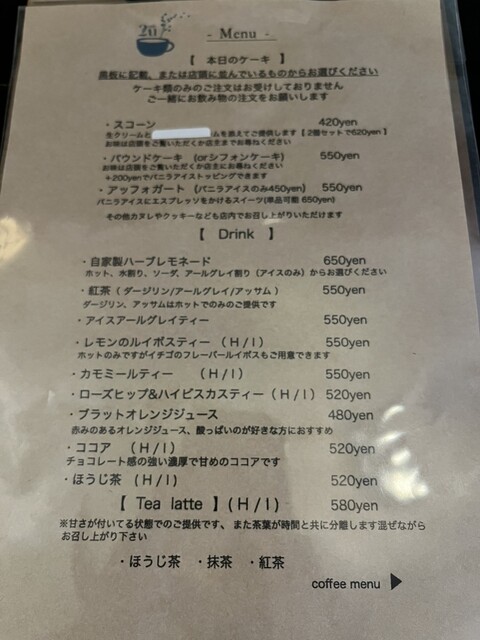 20
- Menu -
【 本日のケーキ 】
黒板に記載、または店頭に並んでいるものからお選びください
ケーキ類のみのご注文はお受けしておりません
ご一緒にお飲み物の注文をお願いします
・スコーン 420yen
生クリームと ムを添えてご提供します【2個セットで620yen】
お味は店頭をご覧いただくか店主までお尋ねください
・パウンドケーキ (orシフォンケーキ) 550yen
お味は店頭をご覧いただくか店主にお尋ねください
+200yenでバニラアイストッピングできます
・アッフォガート (バニラアイスのみ450yen) 550yen
バニラアイスにエスプレッソをかけるスイーツ(単品可能 650yen)
その他カヌレやクッキーなども店内でお召し上がりいただけます
【 Drink 】
・自家製ハーブレモネード 650yen
ホット、水割り、ソーダ、アールグレイ割り(アイスのみ)からお選びください
・紅茶(ダージリン/アールグレイ/アッサム) 550yen
ダージリン、アッサムはホットでのみのご提供です
・アイスアールグレイティー 550yen
・レモンのルイボスティー (H/I) 550yen
ホットのみですがイチゴのフレーバールイボスもご用意できます
・カモミールティー (H/I) 550yen
・ローズヒップ&ハイビスカスティー(H/I) 520yen
・ブラットオレンジジュース 480yen
赤みのあるオレンジジュース、酸っぱいのが好きな方におすすめ
・ココア (H/I) 520yen
チョコレート感の強い濃厚で甘めのココアです
・ほうじ茶 (H/I) 520yen
【 Tea latte 】(H/I) 580yen
※甘さが付いてる状態でのご提供です、また茶葉が時間と共に分離します混ぜながら
お召し上がり下さい
・ほうじ茶 ・抹茶 ・紅茶
coffee menu ▶